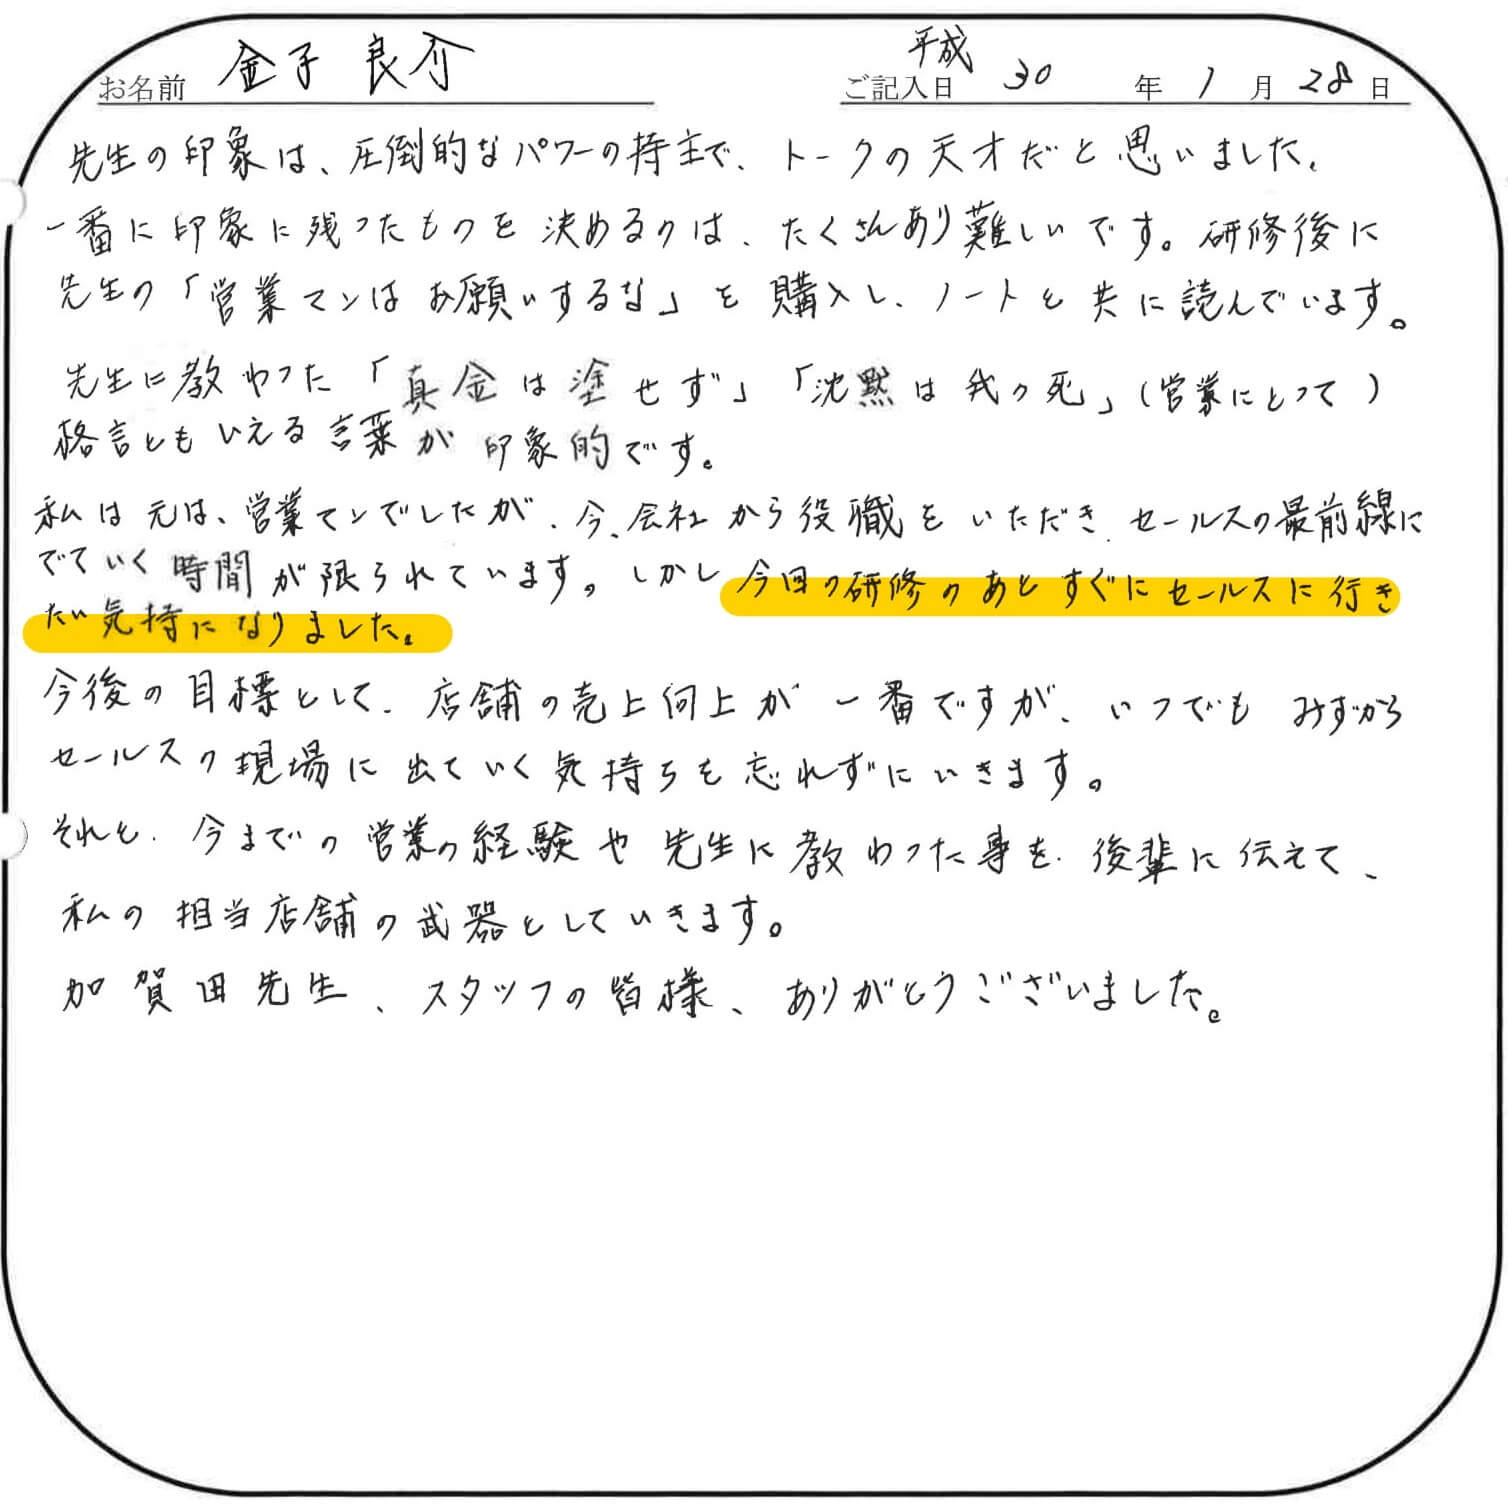 お名前 金子 良介
ご記入日 平成 30 年 1 月 28 日
先生の印象は、圧倒的なパワーの持主で、トークの天才だと思いました。
一番に印象に残ったものを決めるのは、たくさんあり難しいです。研修後に
先生の「営業マンはお願いするな」を購入し、ノートと共に読んでいます。
先生に教わった「真金は塗せず」「沈黙は我の死」(営業にとって)
格言ともいえる言葉が印象的です。
私は元は、営業マンでしたが、今、会社から役職をいただき、セールスの最前線に
でていく時間が限られています。しかし今回の研修のあとすぐにセールスに行き
たい気持になりました。
今後の目標として、店舗の売上向上が一番ですが、いつでもみずから
セールスの現場に出ていく気持ちを忘れずにいきます。
それと、今までの営業の経験や先生に教わった事を、後輩に伝えて、
私の担当店舗の武器としていきます。
加賀田先生、スタッフの皆様、ありがとうございました。